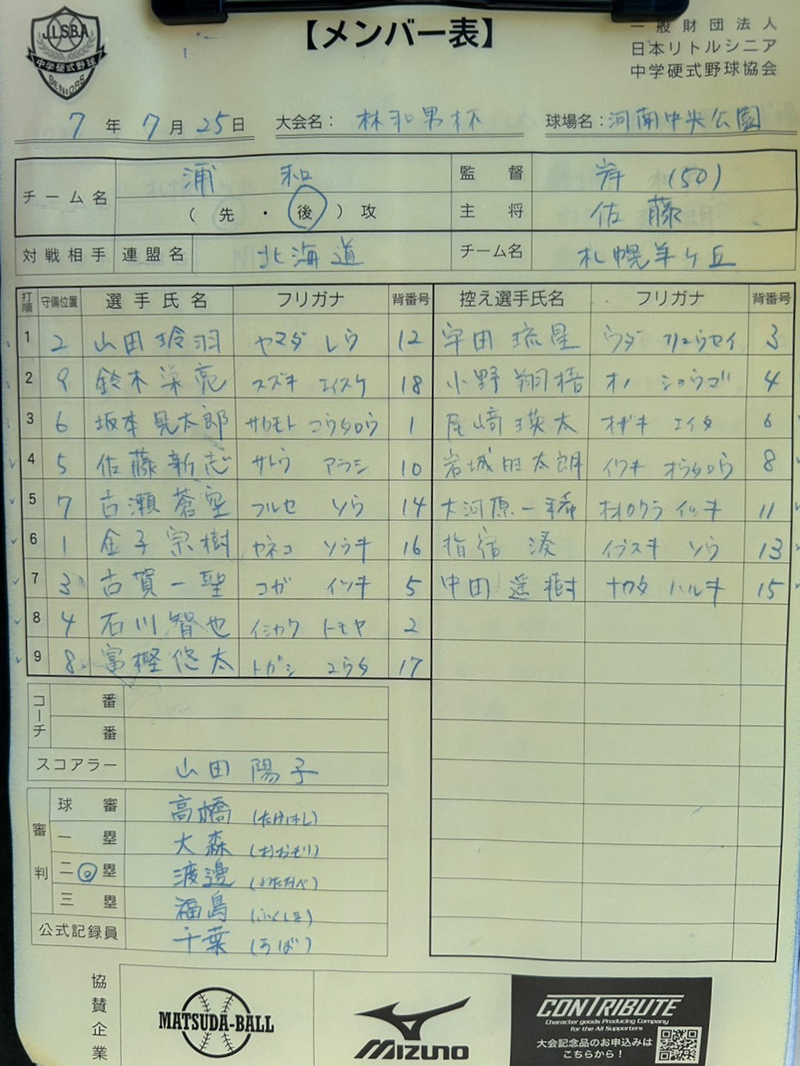 J.L.S.B.A
中学硬式野球
SENIORS
【メンバー表】
一般財団法人
日本リトルシニア
中学硬式野球協会
7年 7月 25日 大会名: 林和男杯 球場名:河南中央公園
チーム名 浦和 監督 岸(50)
(先・後)攻 主将 佐藤
対戦相手 連盟名 北海道 チーム名 札幌羊ヶ丘
打順 守備位置 選手氏名 フリガナ 背番号 控え選手氏名 フリガナ 背番号
1 2 山田玲羽 ヤマダ レウ 12 宇田琉星 ウダ リュウセイ 3
2 9 鈴木栄亮 スズキ エイスケ 18 小野翔梧 オノ ショウゴ 4
3 6 坂本晃太郎 サカモト コウタロウ 1 尾崎瑛太 オザキ エイタ 6
4 5 佐藤新志 サトウ アラシ 10 岩城旺太朗 イワキ オウタロウ 8
5 7 古瀬蒼空 フルセ ソラ 14 大河原一稀 オオカワラ イッキ 11
6 1 金子宗樹 カネコ ソウキ 16 指宿湊 イブスキ ソウ 13
7 3 古賀一聖 コガ イッキ 5 中田遥樹 ナカタ ハルキ 15
8 4 石川智也 イシカワ トモヤ 2
9 8 富樫悠太 トガシ ユウタ 17
コーチ 番
番
スコアラー 山田陽子
審判 球審 高橋(たかはし)
一塁 大森(おおもり)
二塁 渡邊(わたなべ)
三塁 福島(ふくしま)
公式記録員 千葉(ちば)
協賛企業
MATSUDA-BALL
MIZUNO
CONTRIBUTE
Character goods Producing Company
for the All Supporters
大会記念品のお申込みは
こちらから!